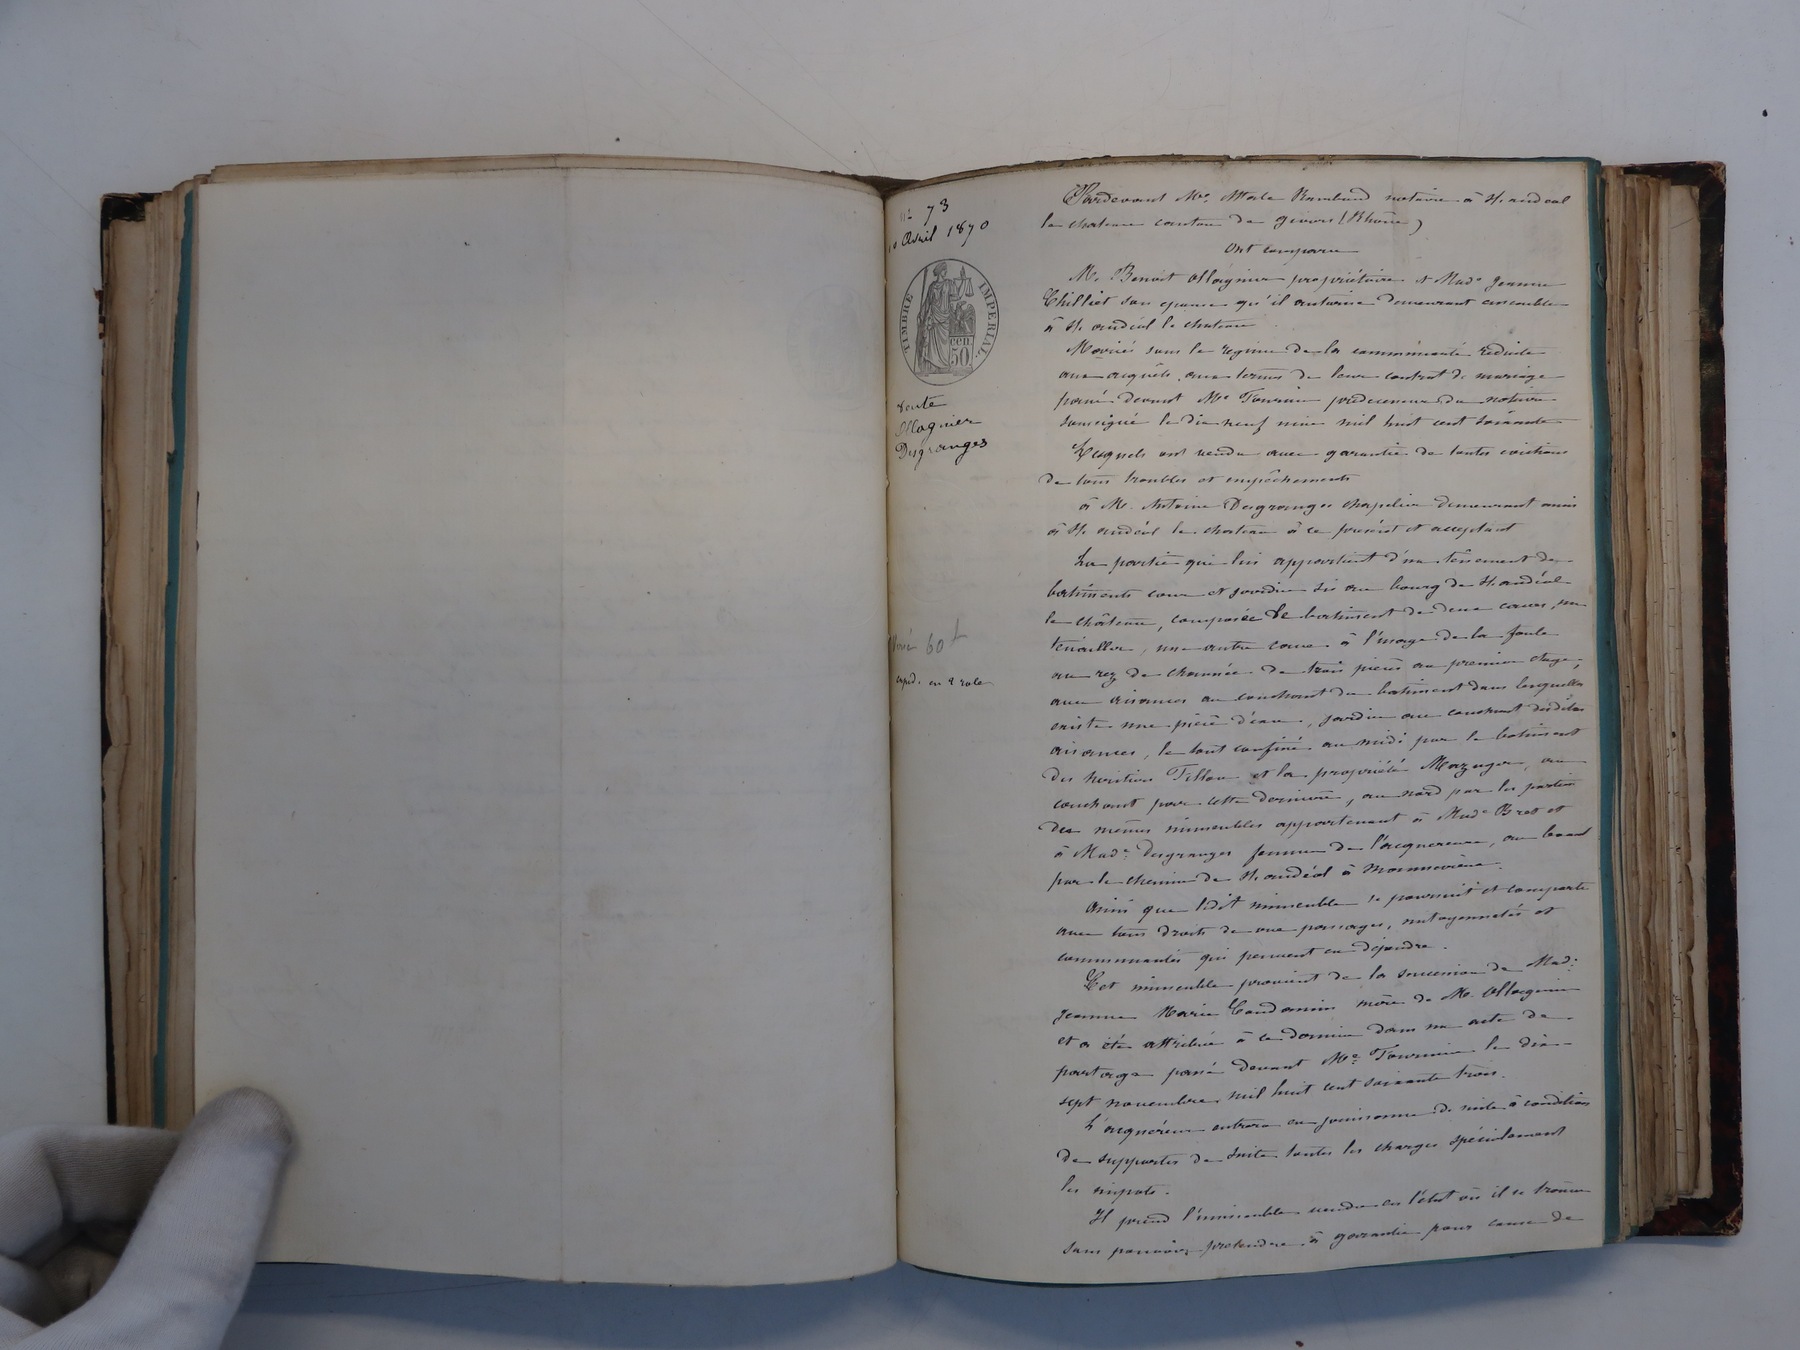 n° 73
Avril 1870
TIMBRE IMPERIAL
cen.
50
Vente
Ollagnier
Desgranges
60 f
expéd. en 2 role
Pardevant Me. Rambaud notaire à St. andéol
le chateau canton de givors (Rhône)
Ont comparu
M. Benoit Ollagnier propriétaire et Made Jeanne
Chilliet son épouse qu'il autorise demeurant ensemble
à St. andéol le chateau
Mariés sous le régime de la communauté réduite
aux acquêts aux termes de leur contrat de mariage
passé devant Me Fournier prédécesseur du notaire
soussigné le dix neuf mil huit cent soixante
Lesquels ont vendu avec garantie de toutes évictions
de tous troubles et empêchements
à M. Antoine Desgranges chapelier demeurant aussi
à St. andéol le chateau à ce présent et acceptant
La partie qui lui appartient d'un tènement de
batiments cour et jardin sis au bourg de St. andéol
le château, composée de batiment de deux caves, un
tenailler, une autre cave à l'usage de la foule
au rez de chaussée de trois pièces au premier étage,
avec aisances au couchant du batiment dans lesquelles
existe une pièce d'eau, jardin au couchant desdites
aisances, le tout confiné au midi par le batiment
des héritiers Fillon et la propriété Mazuyer, au
couchant par cette dernière, au nord par les parties
des mêmes immeubles appartenant à Made Bret et
à Made. Desgranges femme de l'acquereur, au levant
par le chemin de St. andéol à
Ainsi que ledit immeuble se poursuit et comporte
avec tous droits de vue passages, mitoyennetés et
communautés qui peuvent en dépendre.
Cet immeuble provient de la succession de Made.
Jeanne Marie Condamin mère de M. Ollagnier
et a été attribué à ce dernier dans un acte de
partage passé devant Me. Fournier le dix-
sept novembre mil huit cent soixante trois.
L'acquéreur entrera en jouissance de suite à condition
de supporter de suite toutes les charges spécialement
les impots.
Il prend l'immeuble vendu en l'état où il se trouve
sans pouvoir prétendre à garantie pour cause de